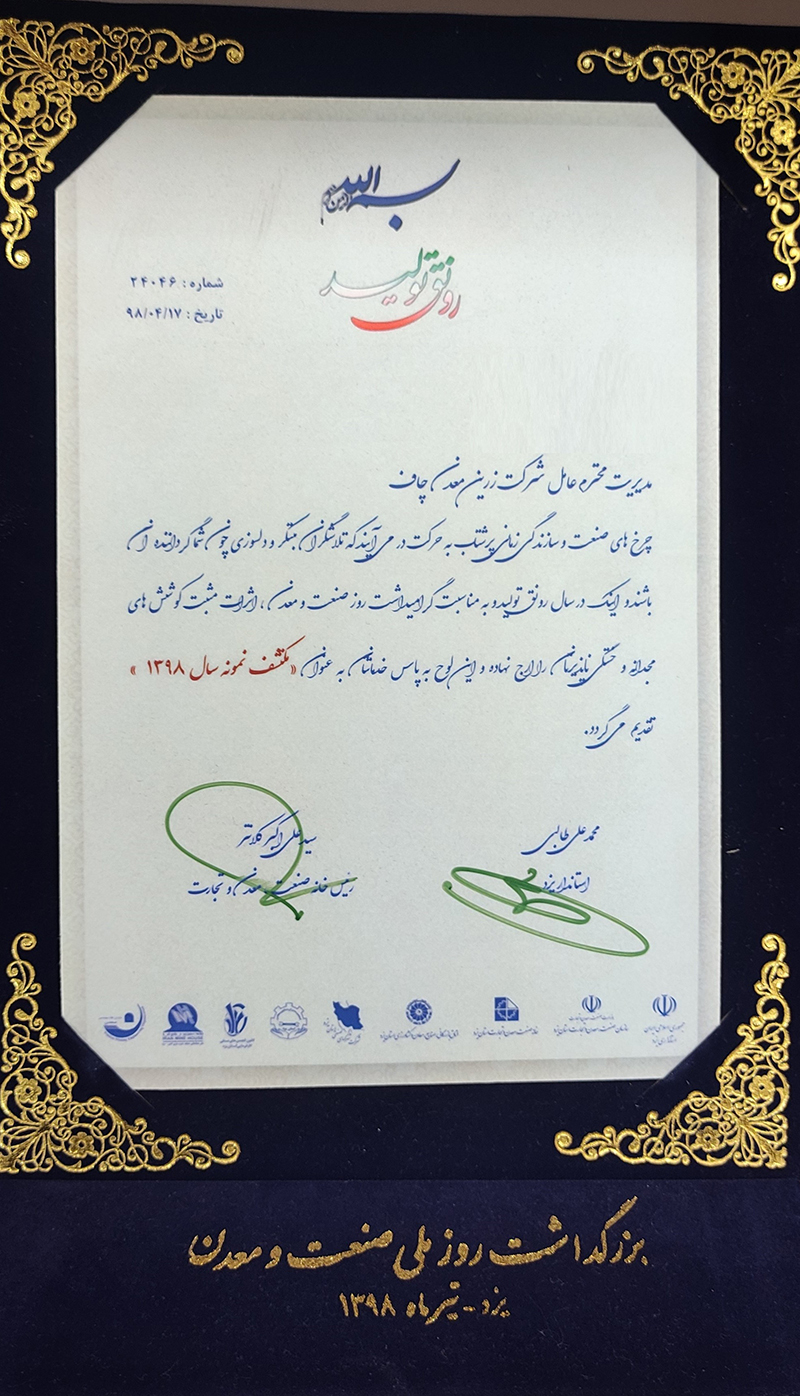 بسم الله الرحمن الرحیم
رونق تولید
شماره : ۲۴۰۴۶
تاریخ : ۹۸/۰۴/۱۷
مدیریت محترم عامل شرکت زرین معدن چاف
چرخ های صنعت و سازندگی زمانی پرشتاب به حرکت در می آیند که تلاشگران مبتکر و دلسوزی چون شما گرداننده آن
باشند و اینک در سال رونق تولید و به مناسبت گرامیداشت روز صنعت و معدن ، اثرات مثبت کوشش های
مجدانه و خستگی ناپذیرتان را ارج نهاده و این لوح به پاس خدماتتان به عنوان « مکتشف نمونه سال ۱۳۹۸ »
تقدیم می گردد.
محمد علی طالبی
استاندار یزد
سید علی اکبر کلانتر
رئیس خانه صنعت معدن و تجارت
جمهوری اسلامی ایران
استانداری یزد
خانه صنعت، معدن و تجارت استان یزد
بزرگداشت روز ملی صنعت و معدن
یزد - تیرماه ۱۳۹۸